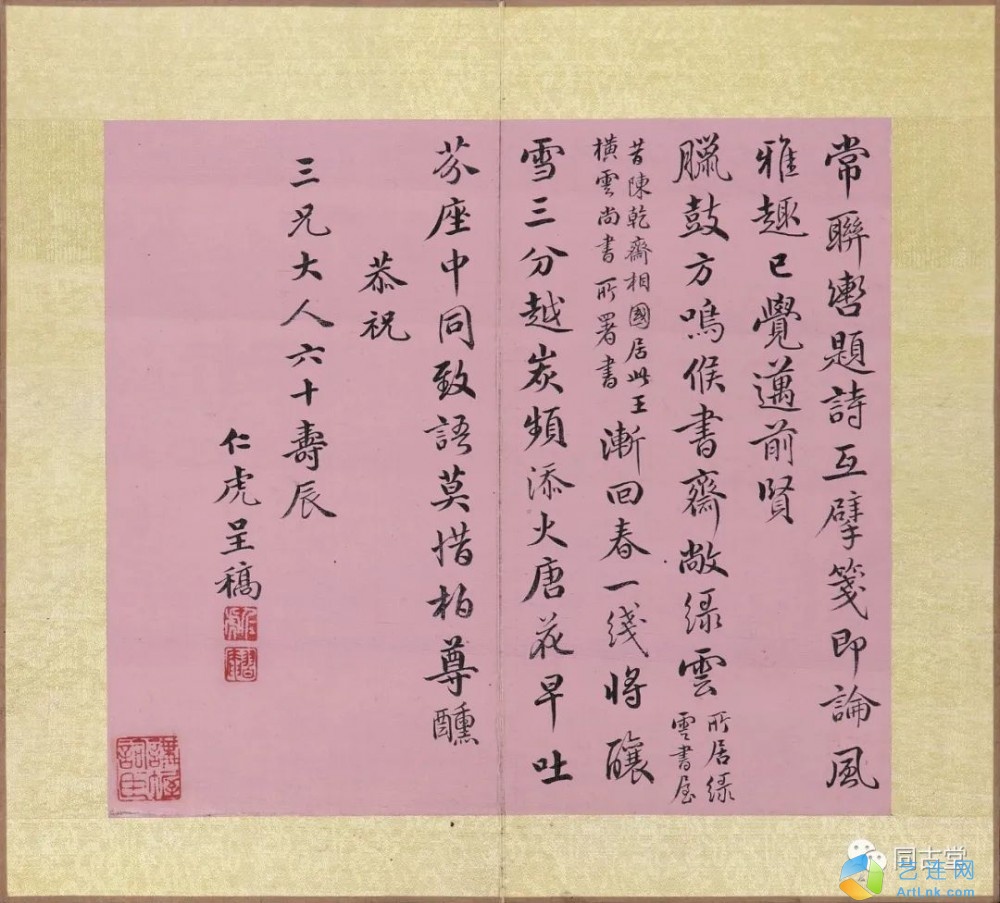 常聯轡題詩互擘箋即論風
雅趣已覺邁前賢
臘鼓方鳴候書齋敞綠雲
所居綠
雲書屋
昔陳乾齋相國居此王
橫雲尚書所署書
漸回春一綫將釀
雪三分越炭頻添火唐花早吐
芬座中同致語莫惜柏尊醺
恭祝
三兄大人六十壽辰
仁虎呈稿
同古堂
艺连网
ArtLnk.com